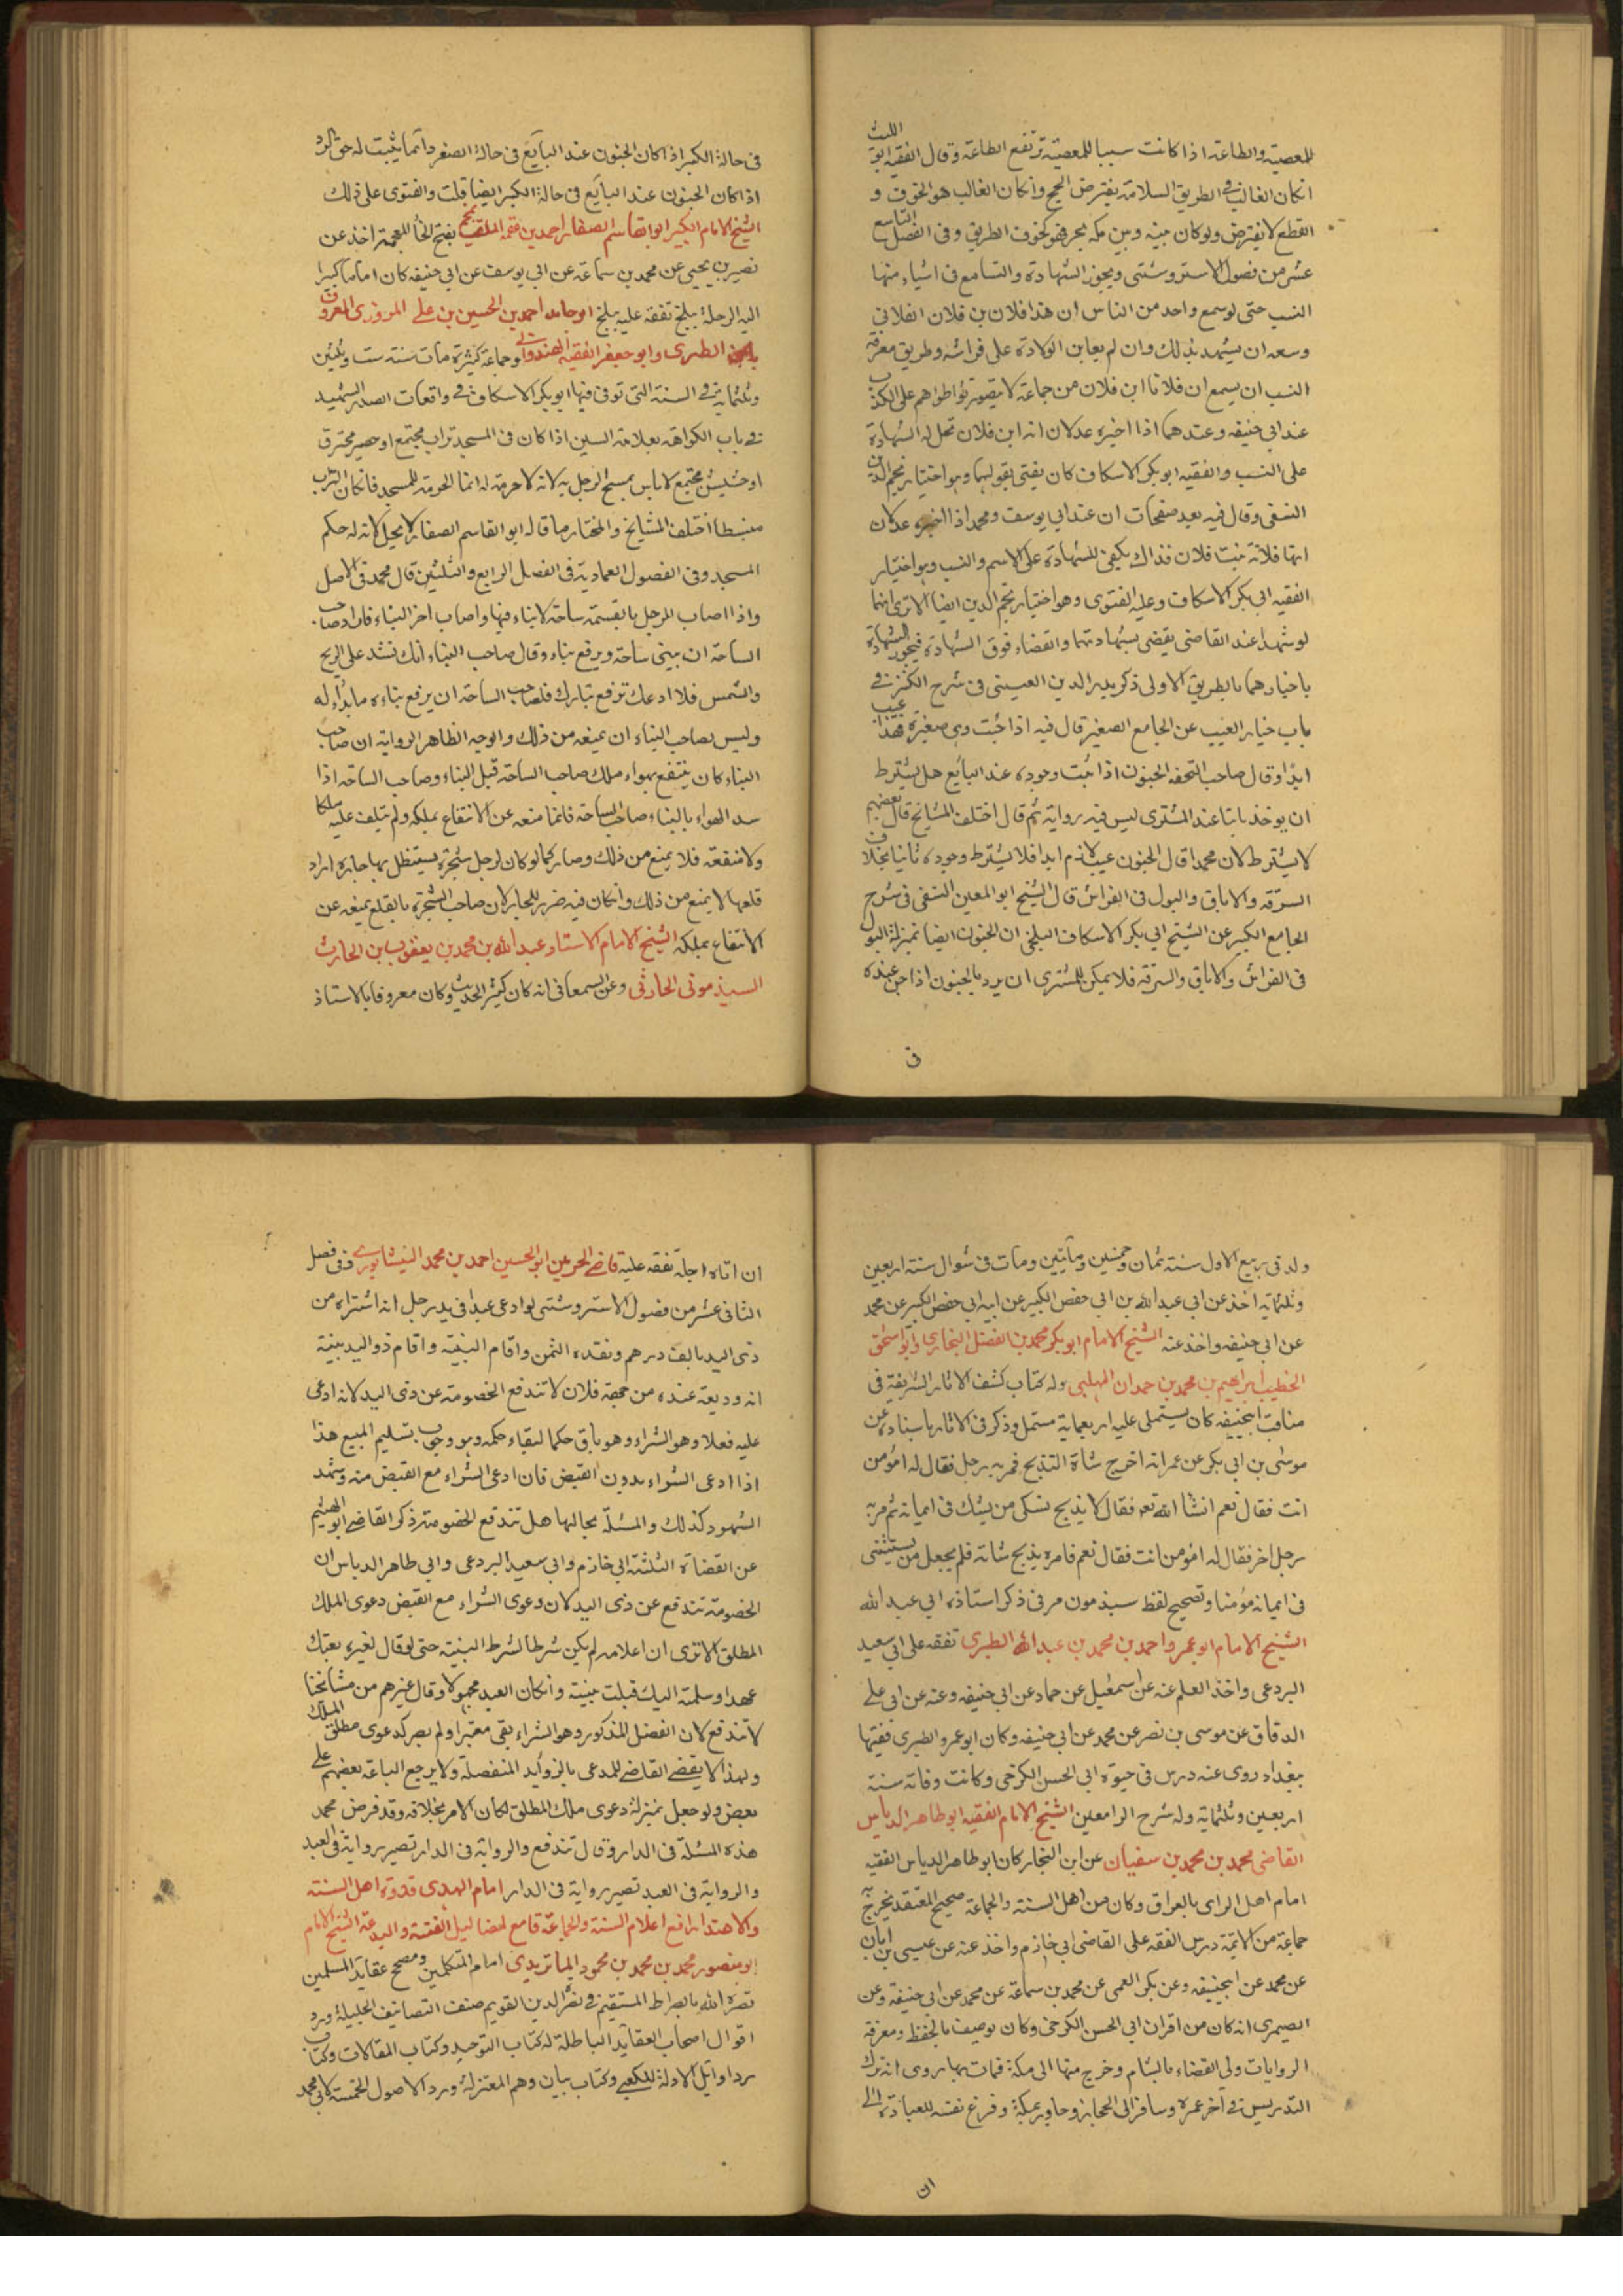 للمعصية والطاعة اذا كانت سببا للمعصية ترتفع الطاعة وقال الفقيه ابو الليث
انكان الغالب فى الطريق السلامة يفترض الحج وانكان الغالب هو الخوف و
القطع لا يفترض ولو كان بينه وبين مكة بحر فهو كخوف الطريق وفى الفصل التاسع
عشر من فصول الاستروشنى ويجوز الشهادة والتسامع فى اشياء منها
النسب حتى لو سمع واحد من الناس ان هذا فلان بن فلان الفلانى
وسعه ان يشهد بذلك وان لم يعاين الولادة على فراشه وطريق معرفة
النسب ان يسمع ان فلانا ابن فلان من جماعة لا يتصور تواطؤهم على الكذب
عند ابى حنيفه وعندهما اذا اخبره عدلان انه ابن فلان تحل له الشهادة
على النسب والفقيه ابو بكر الاسكاف كان يفتى بقولهما وهو اختيار نجم الدين
النسفى وقال فيه بعد صفحات ان عند ابى يوسف ومحمد اذا اخبره عدلان
انها فلانة بنت فلان فذاك يكفى للشهادة على الاسم والنسب وهو اختيار
الفقيه ابى بكر الاسكاف وعليه الفتوى وهو اختيار نجم الدين ايضا الا ترى انهما
لو شهدا عند القاضى يقضى بشهادتهما والقضاء فوق الشهادة فيجوز الشهادة
باخبارهما بالطريق الاولى ذكر بدر الدين العينى فى شرح الكنز فى
باب خيار العيب عن الجامع الصغير قال فيه اذا جنت وهى صغيرة فهذا عيب
ابدا وقال صاحب التحفة الجنون اذا ثبت وجوده عند البائع هل يشترط
ان يوخذ ثابتا عند المشترى ليس فيه رواية ثم قال اختلف المشايخ قال بعضهم
لا يشترط لان محمدا قال الجنون عيب لازم ابدا فلا يشترط وجوده ثانيا بخلاف
السرقة والاباق والبول فى الفراش قال الشيخ ابو المعين النسفى فى شرح
الجامع الكبير عن الشيخ ابى بكر الاسكاف البلخى ان الجنون ايضا بمنزلة البول
فى الفراش والاباق والسرقة فلا يمكن للمشترى ان يرد بالجنون اذا جن عنده
فى
فى حالة الكبر اذا كان الجنون عند البايع فى حالة الصغر وانما يثبت له حق الرد
اذا كان الجنون عند البايع فى حالة الكبر ايضا قلت والفتوى على ذلك
الشيخ الامام الكبير ابو القاسم الصفار احمد بن عصمة الملقب بفتح الخا المعجمة اخذ عن
نصير بن يحيى عن محمد بن سماعة عن ابى يوسف عن ابى حنيفه كان اماما كبيرا
اليه الرحلة ببلخ تفقه عليه ببلخ ابو حامد احمد بن الحسين بن على المروزى المعروف
بابن الطبرى وابو جعفر الفقيه الهندوانى وجماعة كثيرة مات سنة ست وثلثين
وثلثماية فى السنة التى توفى فيها ابو بكر الاسكاف فى واقعات الصدر الشهيد
فى باب الكراهة بعلامة السين اذا كان فى المسجد تراب مجتمع او حصير محترق
او حشيش مجتمع لا باس بمسح الرجل به لانه لا حرمة له انما الحرمة للمسجد فانكان التراب
منبسطا اختلف المشايخ والمختار ما قاله ابو القاسم الصفار لا يحل لانه له حكم
المسجد وفى الفصول العمادية فى الفصل الرابع والثلثين قال محمد فى الاصل
واذا اصاب الرجل بالقسمة ساحة لا بناء فيها واصاب اخر البناء فاراد صاحب
الساحة ان يبنى ساحة ويرفع بناء وقال صاحب البناء انك تشد على الريح
والشمس فلا ادعك ترفع بناءك فلصاحب الساحة ان يرفع بناءه ما بدأ له
وليس لصاحب البناء ان يمنعه من ذلك والوجه الظاهر الرواية ان صاحب
البناء كان ينتفع بهواء ملك صاحب الساحة قبل البناء وصاحب الساحة اذا
سد الهواء بالبناء صاحب الساحة فانما منعه عن الانتفاع بملكه ولم يتلف عليه ملكا
ولا منفعة فلا يمنع من ذلك وصار كما لو كان لرجل شجرة يستظل بها جاره اراد
قلعها لا يمنع من ذلك وانكان فيه ضرر للجار لان صاحب الشجرة بالقلع يمنعه عن
الانتفاع بملكه الشيخ الامام الاستاد عبد الله بن محمد بن يعقوب بن الحارث
السبذمونى الحارثى وعن السمعانى انه كان كثير الحديث وكان معروفا بالاستاذ
ولد فى ربيع الاول سنة ثمان وخمسين ومأتين ومات فى شوال سنة اربعين
وثلثماية اخذ عن ابى عبد الله بن ابى حفص الكبير عن ابيه ابى حفص الكبير عن محمد
عن ابى حنيفه واخذ عنه الشيخ الامام ابو بكر محمد بن الفضل البخارى وابو اسحق
الخطيب ابراهيم بن محمد بن حمدان المهلبى وله كتاب كشف الاثار الشريفة فى
مناقب ابيحنيفه كان يستملى عليه اربعماية مستمل وذكر فى الاثار باسناده عن
موسى بن ابى بكر عن عمر انه اخرج شاة لتذبح فمر به رجل فقال له امؤمن
انت فقال نعم انشا الله تع فقال لا يذبح نسكى من يشك فى ايمانه ثم مر به
رجل اخر فقال له امؤمن انت فقال نعم فامره بذبح شاته فلم يجعل من يستثنى
فى ايمانه مؤمنا وتصحيح لفظ سبذمون مر فى ذكر استاذه ابى عبد الله
الشيخ الامام ابو عمرو احمد بن محمد بن عبد الله الطبرى تفقه على ابى سعيد
البردعى واخذ العلم عنه عن اسمعيل عن حماد عن ابى حنيفه وعنه عن ابى على
الدقاق عن موسى بن نصر عن محمد عن ابى حنيفه وكان ابو عمرو الطبرى فقيها
ببغداد روى عنه درس فى حيوة ابى الحسن الكرخى وكانت وفاته سنة
اربعين وثلثماية وله شرح الرامعين الشيخ الامام الفقيه ابو طاهر الدباس
القاضى محمد بن محمد بن سفيان عن ابن النجار كان ابو طاهر الدباس الفقيه
امام اهل الراى بالعراق وكان من اهل السنة والجماعة صحيح المعتقد تخرج به
جماعة من الائمة درس الفقه على القاضى ابى خازم واخذ عنه عن عيسى بن ابان
عن محمد عن ابيحنيفه وعن بكر العمى عن محمد بن سماعة عن محمد عن ابى حنيفه وعن
الصيمرى انه كان من اقران ابى الحسن الكرخى وكان يوصف بالحفظ ومعرفة
الروايات ولى القضاء بالشام وخرج منها الى مكة فمات بها روى انه ترك
التدريس فى آخر عمره وسافر الى الحجاز وجاور بمكة وفرغ نفسه للعبادة الى
ان
ان اتاه اجله تفقه عليه قاضى الحرمين ابو الحسين احمد بن محمد النيشابورى وفى فصل
الثانى عشر من فصول الاستروشنى لو ادعى عبدا فى يد رجل انه اشتراه من
ذى اليد بالف درهم ونقده الثمن واقام البينة واقام ذو اليد بينة
انه وديعة عنده من جهة فلان لا تندفع الخصومة عن ذى اليد لانه ادعى
عليه فعلا وهو الشراء وهو باق حكما لبقاء حكمه وهو وجوب تسليم المبيع هذا
اذا ادعى الشراء بدون القبض فان ادعى الشراء مع القبض منه وشهد
الشهود كذلك والمسئلة بحالها هل تندفع الخصومة ذكر القاضى ابو الهيثم
عن القضاة الثلثة ابى خازم وابى سعيد البردعى وابى طاهر الدباس ان
الخصومة تندفع عن ذى اليد لان دعوى الشراء مع القبض دعوى الملك
المطلق الا ترى ان اعلامه لم يكن شرطا لشرط البينة حتى لو قال لغيره بعتك
عبدا وسلمته اليك قبلت بينته وانكان العبد مجهولا وقال غيرهم من مشائخنا
لا تندفع لان الفضل المذكور وهو الشراء بقى معتبرا ولم يصر كدعوى مطلق الملك
ولهذا لا يقضى القاضى للمدعى بالزوائد المنفصلة ولا يرجع الباعة بعضهم على
بعض ولو جعل بمنزلة دعوى ملك المطلق لكان الامر بخلافه وقد فرض محمد
هذه المسئلة فى الدار وقال تندفع والرواية فى الدار تصير رواية فى العبد
والرواية فى العبد تصير رواية فى الدار امام الهدى قدوة اهل السنة
والاهتداء رافع اعلام السنة والجماعة قامع اضاليل الفتنة والبدعة الشيخ الامام
ابو منصور محمد بن محمد بن محمود الماتريدى امام المتكلمين ومصحح عقايد المسلمين
نصره الله بالصراط المستقيم فى نصر الدين القويم صنف التصانيف الجليلة ورد
اقوال اصحاب العقايد الباطلة له كتاب التوحيد وكتاب المقالات وكتاب
رد اوايل الادلة للكعبى وكتاب بيان وهم المعتزلة ورد الاصول الخمسة لابى محمد